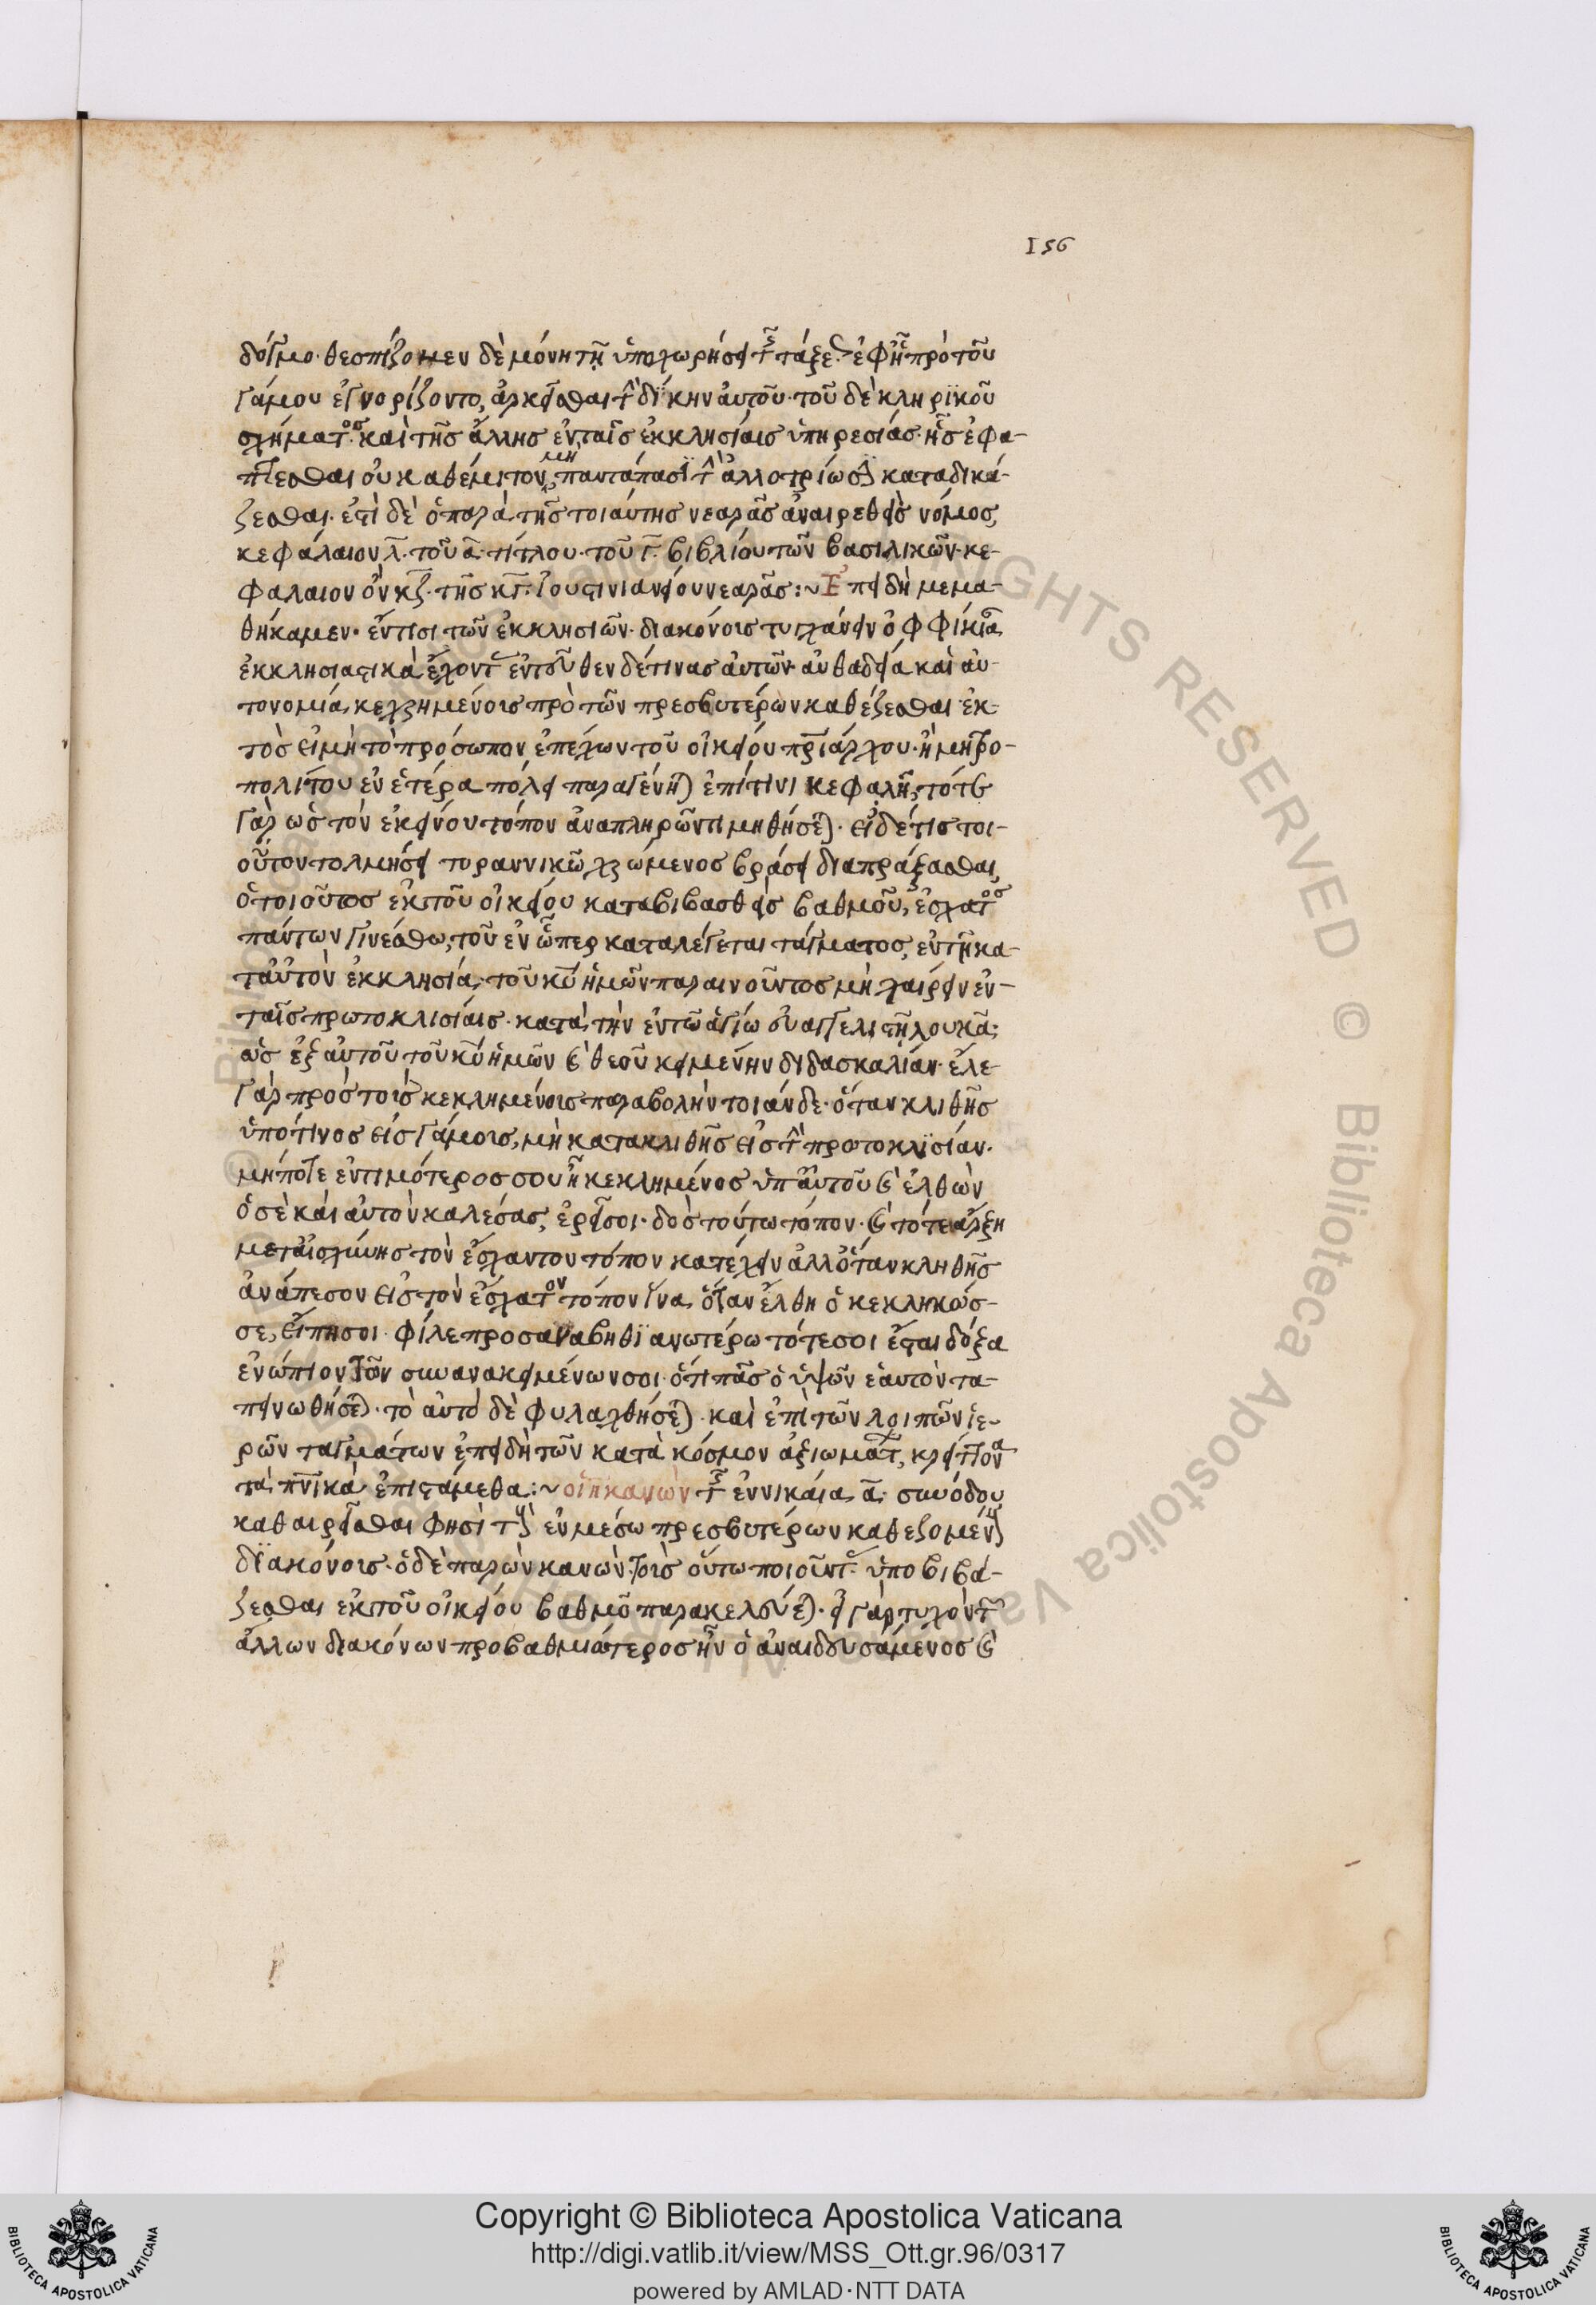 156
δόγμα· θεσπίζομεν δὲ μόνη τῆ ὑποχωρήσει τῆς τάξεως ἐφ ἧς πρὸ τοῦ
γάμου ἐγνορίζοντο, ἀρκεῖσθαι τὴν δίκην αὐτοῦ· τοῦ δὲ κληρϊκοῦ
σχήματος· καὶ τῆς ἄλλης ἐν ταῖς ἐκκλησίαις ὑπηρεσίας· ἧς ἐφα-
πτεσθαι οὐκ αθέμιτον, μὴ παντάπασϊ τὴν ἀλλοτρίωσιν καταδικά-
ζεσθαι· ἔστι δὲ ὁ παρὰ τῆς τοιαύτης νεαρᾶς ἀναιρεθεὶς νόμος,
κεφάλαιον λ. τοῦ α. τίτλου· τοῦ γ. βιβλίου τῶν βασιλικῶν· κε-
φαλαιον ὂν κζ. τῆς κγ. ἰουστινιανείου νεαρᾶς :~ Ἐπειδὴ μεμα-
θήκαμεν· ἔν τισι τῶν ἐκκλησιῶν· διακόνους τυγχάνειν ὀφφίκια
ἐκκλησιαστικὰ ἔχοντας ἐντεῦθεν δέ τινας αὐτῶν· αὐθαδεία καὶ αὐ-
τονομία, κεχρημένους πρὸ τῶν πρεσβυτέρων καθέζεσθαι· ἐκ-
τὸς εἰ μὴ τὸ πρόσωπον ἐπέχων τοῦ οἰκείου πριάρχου· ἢ μητρο-
πολίτου ἐν ἑτέρα πόλει παραγένηται ἐπί τινι κεφαλῆ, τότε
γὰρ ὡς τὸν ἐκείνου τόπον ἀναπληρῶν τιμηθήσεται· εἰ δέ τις τοι-
οῦτον τολμήσει τυραννικῶ χρώμενος θράσει διαπράξασθαι,
ὁ τοιοῦτος ἐκ τοῦ οἰκείου καταβιβασθεὶς βαθμοῦ, ἔσχατος
πάντων γινέσθω, τοῦ ἐν ὧπερ καταλέγεται τάγματος, ἐν τῆ κα-
τ αὐτὸν ἐκκλησία, τοῦ κυ ἡμῶν παραινοῦντος μὴ χαίρειν ἐν-
ταῖς πρωτοκλισίαις· κατὰ τὴν ἐν τῶ ἁγίω εὐαγγελιστῆ λουκᾶ,
ὡς ἐξ αὐτοῦ τοῦ κυ ἡμῶν καὶ θεοῦ κειμένην διδασκαλίαν· ἔλε-
γαρ πρὸς τοὺς κεκλημένους παραβολὴν τοιάνδε· ὅταν κλιθῆς
ὑπό τινος εἰς γάμους, μὴ κατακλιθῆς εἰς τὴν πρωτοκλϊσίαν·
μήποτε ἐντιμότερος σου ἦ κεκλημένος ὑπ αὐτοῦ καὶ ἐλθὼν
ὁ σὲ καὶ αὐτὸν καλέσας, ἐρεῖ σοι· δὸς τούτω τόπον· καὶ τότε ἄρξη
μετ αἰσχύνης τὸν ἔσχαντον τόπον κατέχειν ἀλλ ὅταν κληθῆς
ἀνάπεσον εἰς τὸν ἔσχατον τόπον ἵνα ὅταν ἔλθη ὁ κεκληκώς-
σε, εἴπη σοι· φίλε προσανάβηθϊ ανωτέρω τότε σοι ἔσται δόξα
ἐνώπιον τῶν συνανακειμένων σοι· ὅτι πᾶς ὁ ὑψῶν ἑαυτὸν τα-
πεινωθήσεται· τὸ αὐτὸ δὲ φυλαχθήσεται· καὶ ἐπὶ τῶν λοιπῶν ἱε-
ρῶν ταγμάτων ἐπειδὴ τῶν κατὰ κόσμον ἀξιωμάτων, κρείττονα
τὰ πνικὰ ἐπιστάμεθα :~ ὁ ιη κανὼν τῆς ἐν νικαία α. συνόδου
καθαιρεῖσθαι φησὶ τοὺς ἐν μέσω πρεσβυτέρων καθεζομένους
δϊακόνους· ὁ δὲ παρὼν κανὼν· τοὺς οὕτω ποιοῦντας· ὑποβιβά-
ζεσθαι ἐκ τοῦ οἰκείου βαθμοῦ παρακελεύεται· εἰ γὰρ τυχὸν τῶν
ἄλλων διακόνων προβαθμιώτερος ἦν ὁ ἀναιδευσάμενος καὶ
Copyright © Biblioteca Apostolica Vaticana
http://digi.vatlib.it/view/MSS_Ott.gr.96/0317
powered by AMLAD·NTT DATA